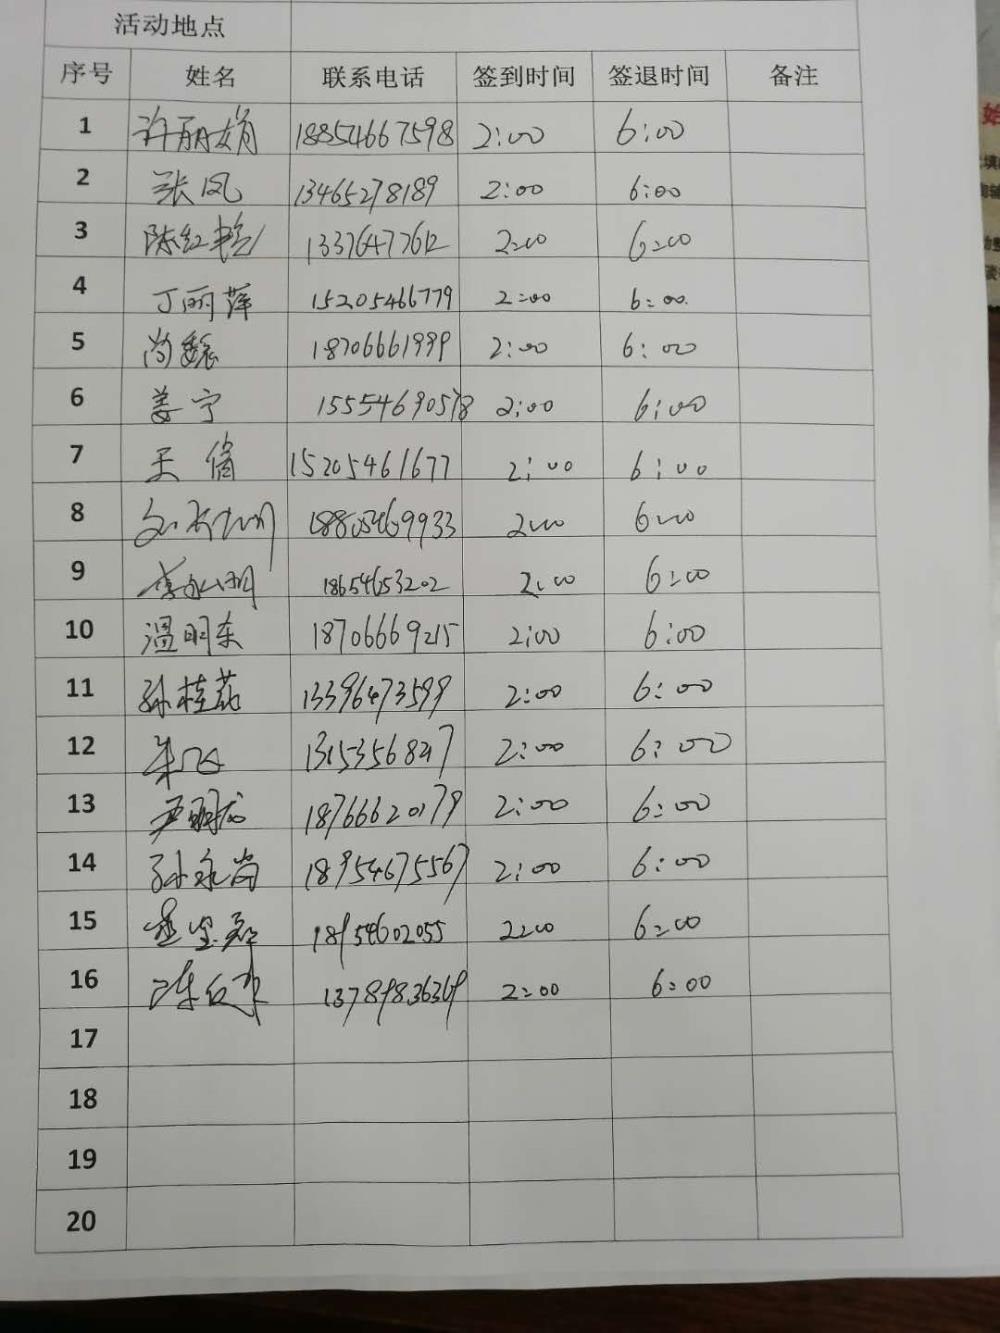 活动地点
序号 姓名 联系电话 签到时间 签退时间 备注
1 许丽娟 18854667598 2:00 6:00
2 张凤 13465278189 2:00 6:00
3 陈红艳 13376477612 2:00 6:00
4 丁丽萍 15205466779 2:00 6:00
5 尚 18706661999 2:00 6:00
6 姜宁 15554690578 2:00 6:00
7 王倩 15205461677 2:00 6:00
8 2:00 6:00
9 18654653202 2:00 6:00
10 温明东 18706669215 2:00 6:00
11 孙桂茹 13396473599 2:00 6:00
12 朱飞 13153568217 2:00 6:00
13 严明成 18766620179 2:00 6:00
14 孙永尚 18954675567 2:00 6:00
15 18954602055 2:00 6:00
16 13789836369 2:00 6:00
17
18
19
20